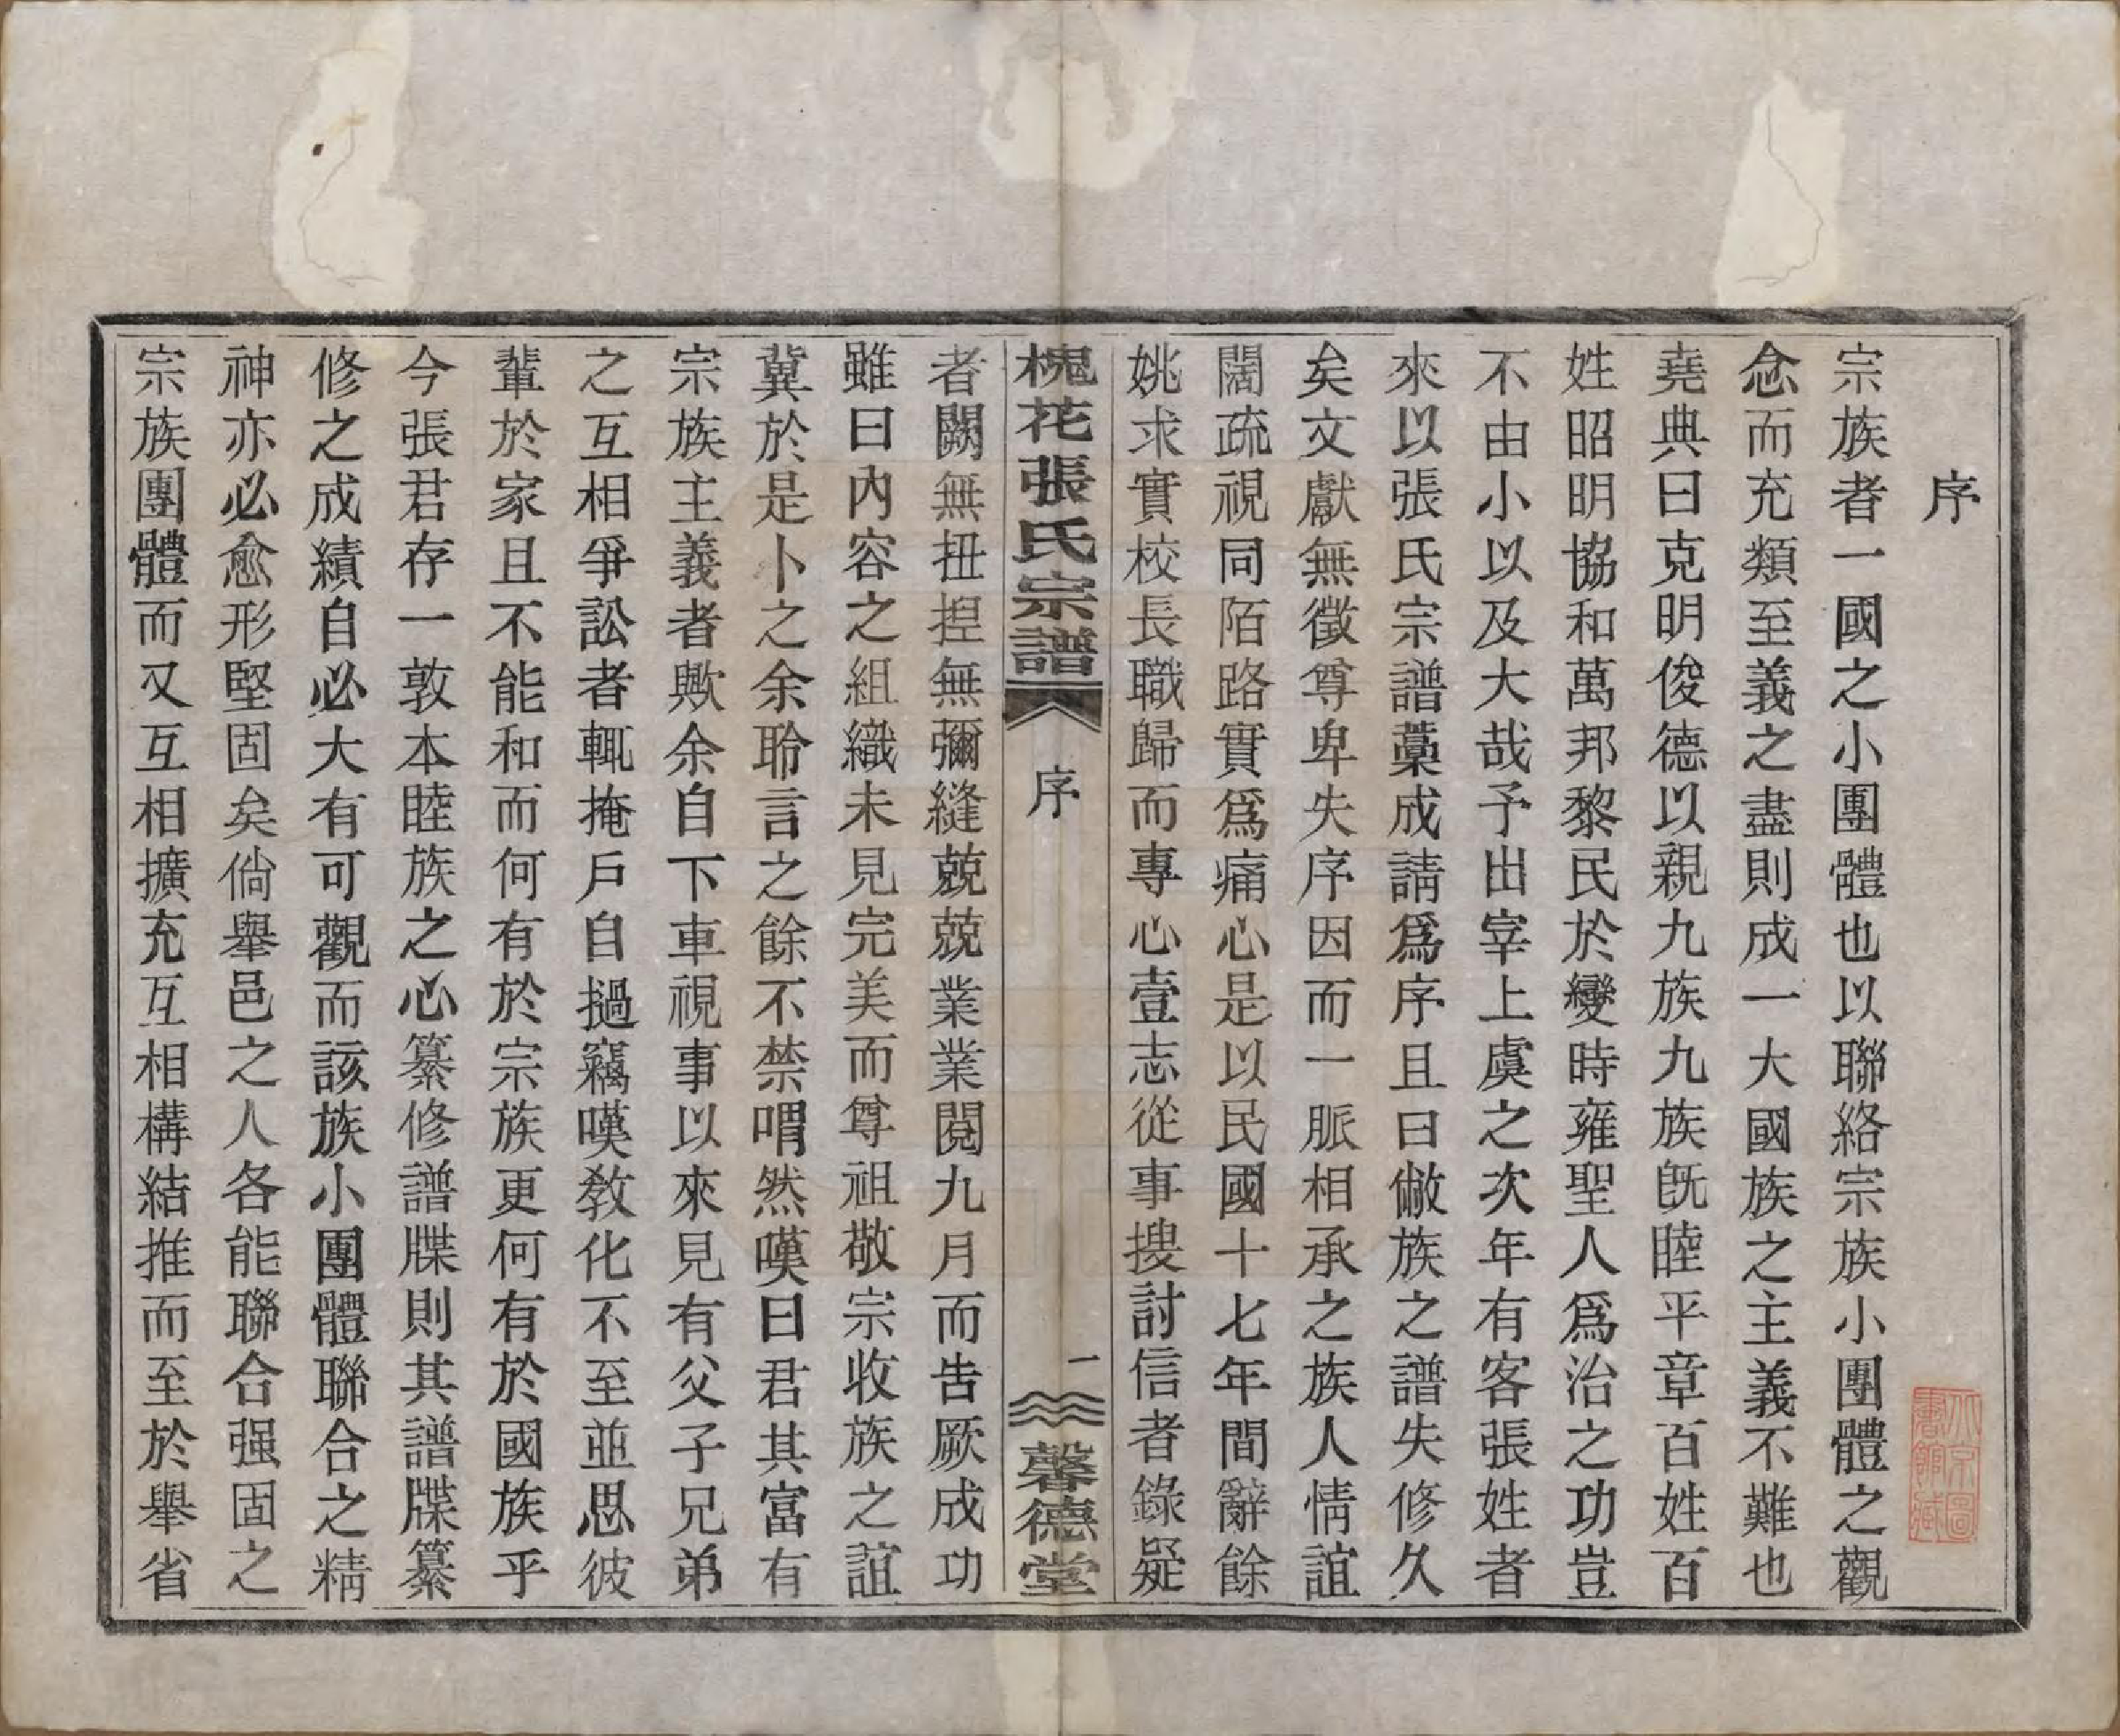 序
宗族者一國之小團體也以聯絡宗族小團體之觀
念而充類至義之盡則成一大國族之主義不難也
堯典曰克明俊德以親九族九族旣睦平章百姓百
姓昭明協和萬邦黎民於變時雍聖人爲治之功豈
不由小以及大哉予出宰上虞之次年有客張姓者
來以張氏宗譜藁成請爲序且曰僘族之譜失修久
矣文獻無徵尊卑失序因而一脈相承之族人情誼
闊疏視同陌路實爲痛心是以民國十七年間辭餘
姚求實校長職歸而專心壹志從事搜討信者錄疑
者闕無扭揑無彌縫兢兢業業閱九月而告厥成功
雖曰內容之組織未見完美而尊祖敬宗收族之誼
冀於是卜之余聆言之餘不禁喟然嘆曰君其富有
宗族主義者歟余自下車視事以來見有父子兄弟
之互相爭訟者輒掩戶自撾竊嘆敎化不至並思彼
輩於家且不能和而何有於宗族更何有於國族乎
今張君存一敦本睦族之心纂修譜牒則其譜牒纂
修之成績自必大有可觀而該族小團體聯合之精
神亦必愈形堅固矣倘舉邑之人各能聯合强固之
宗族團體而又互相擴充互相構結推而至於舉省
槐花張氏宗譜
序
一
馨德堂
北京圖書館藏